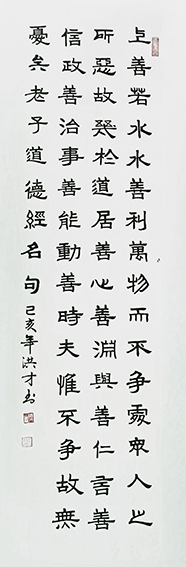 上善若水水善利萬物而不争處眾人之
所惡故幾於道居善心善淵與善仁言善
信政善治事善能動善時夫惟不争故無
憂矣老子道德經名句
己亥年洪才书